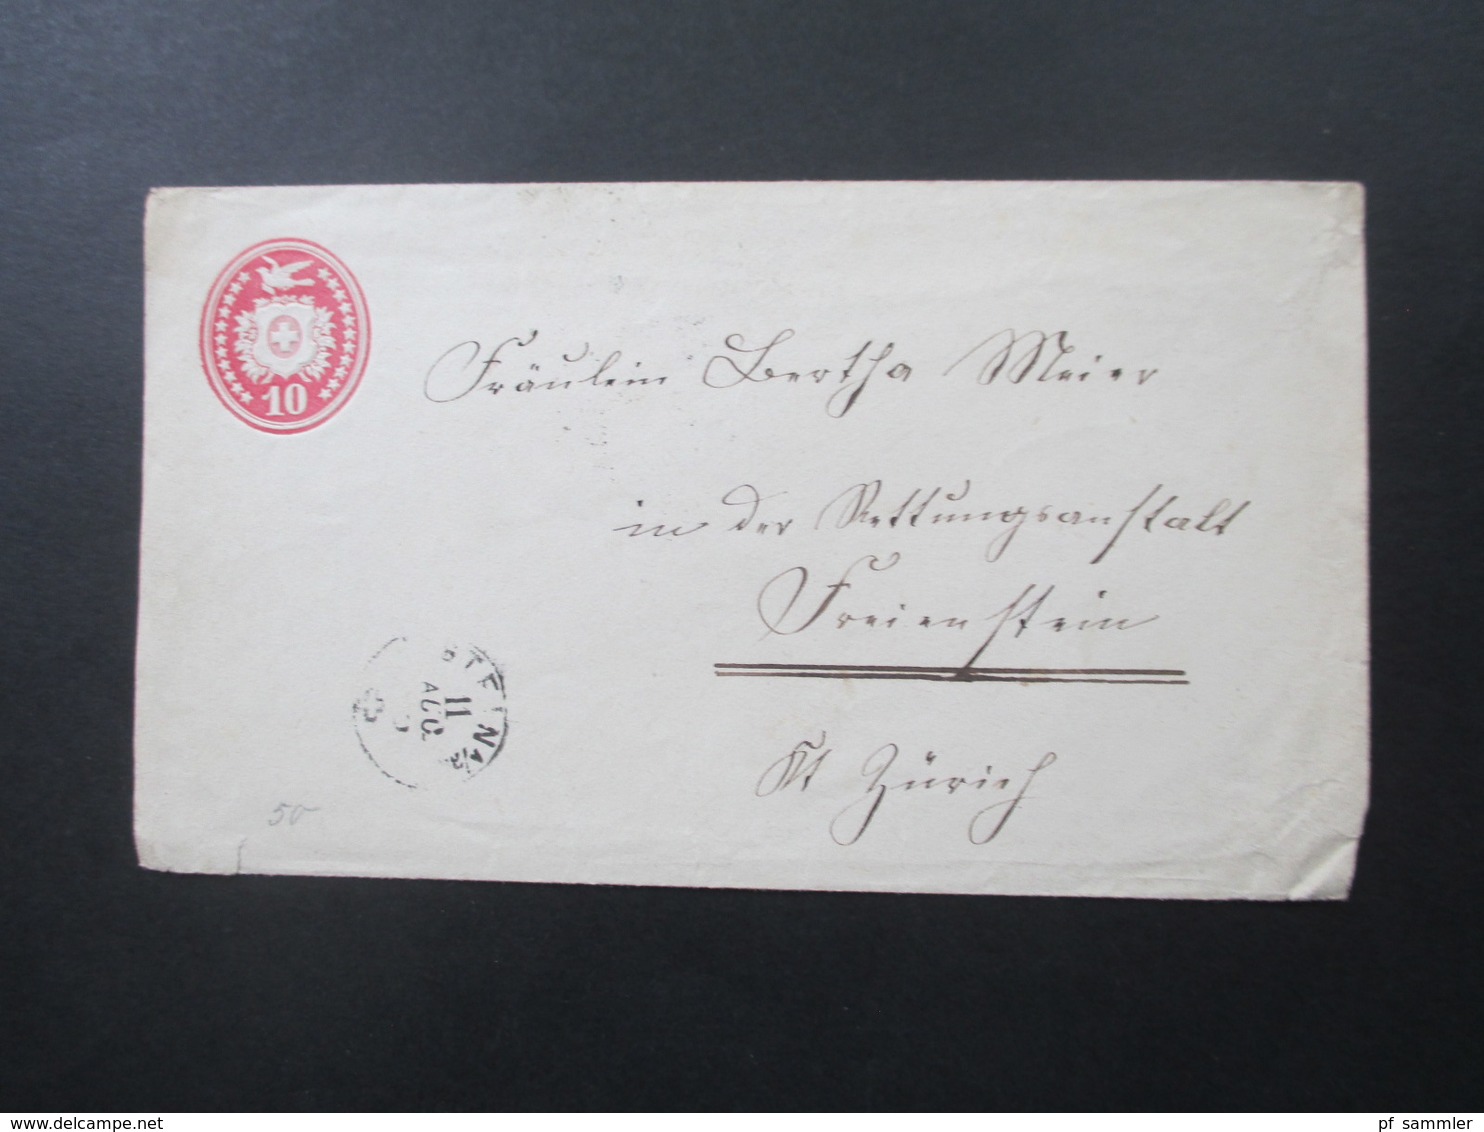 10
Fräulein Bertha Meier
in der Rettungsanstalt
Freienstein
Kt Zürich
11
AUG.
50
www.delcampe.net
pf_sammler